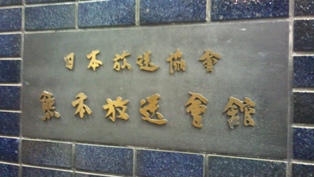 日本放送協會
熊本放送會館